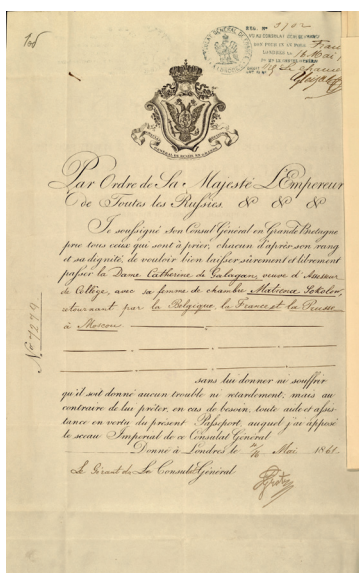 REG. № 3782
VU AU CONSULAT GÉNÉRAL
LONDRES LE 16 Mai
CONSULAT GÉNÉRAL DE FRANCE
LONDRES
Par Ordre de Sa Majesté L'Empereur
de Toutes les Russies. & & &
Je soussigné Son Consul Général en Grande Bretagne
prie tous ceux qui sont à prier, chacun d'après son rang
et sa dignité, de vouloir bien laisser sûrement et librement
passer la Dame Catherine de Galagan, veuve d'Assesseur
de Collège, avec sa femme de chambre Matrena Sokolow,
retournant par la Belgique, la France et la Prusse
à Moscou
sans lui donner ni souffrir
qu'il soit donné aucun trouble ni retardement, mais au
contraire de lui prêter, en cas de besoin, toute aide et assis-
tance en vertu du présent Passeport, auquel j'ai apposé
le sceau Impérial de ce Consulat Général
Donné à Londres le Mai 1861.
Le Gérant de Ce Consulat Général
No 7279